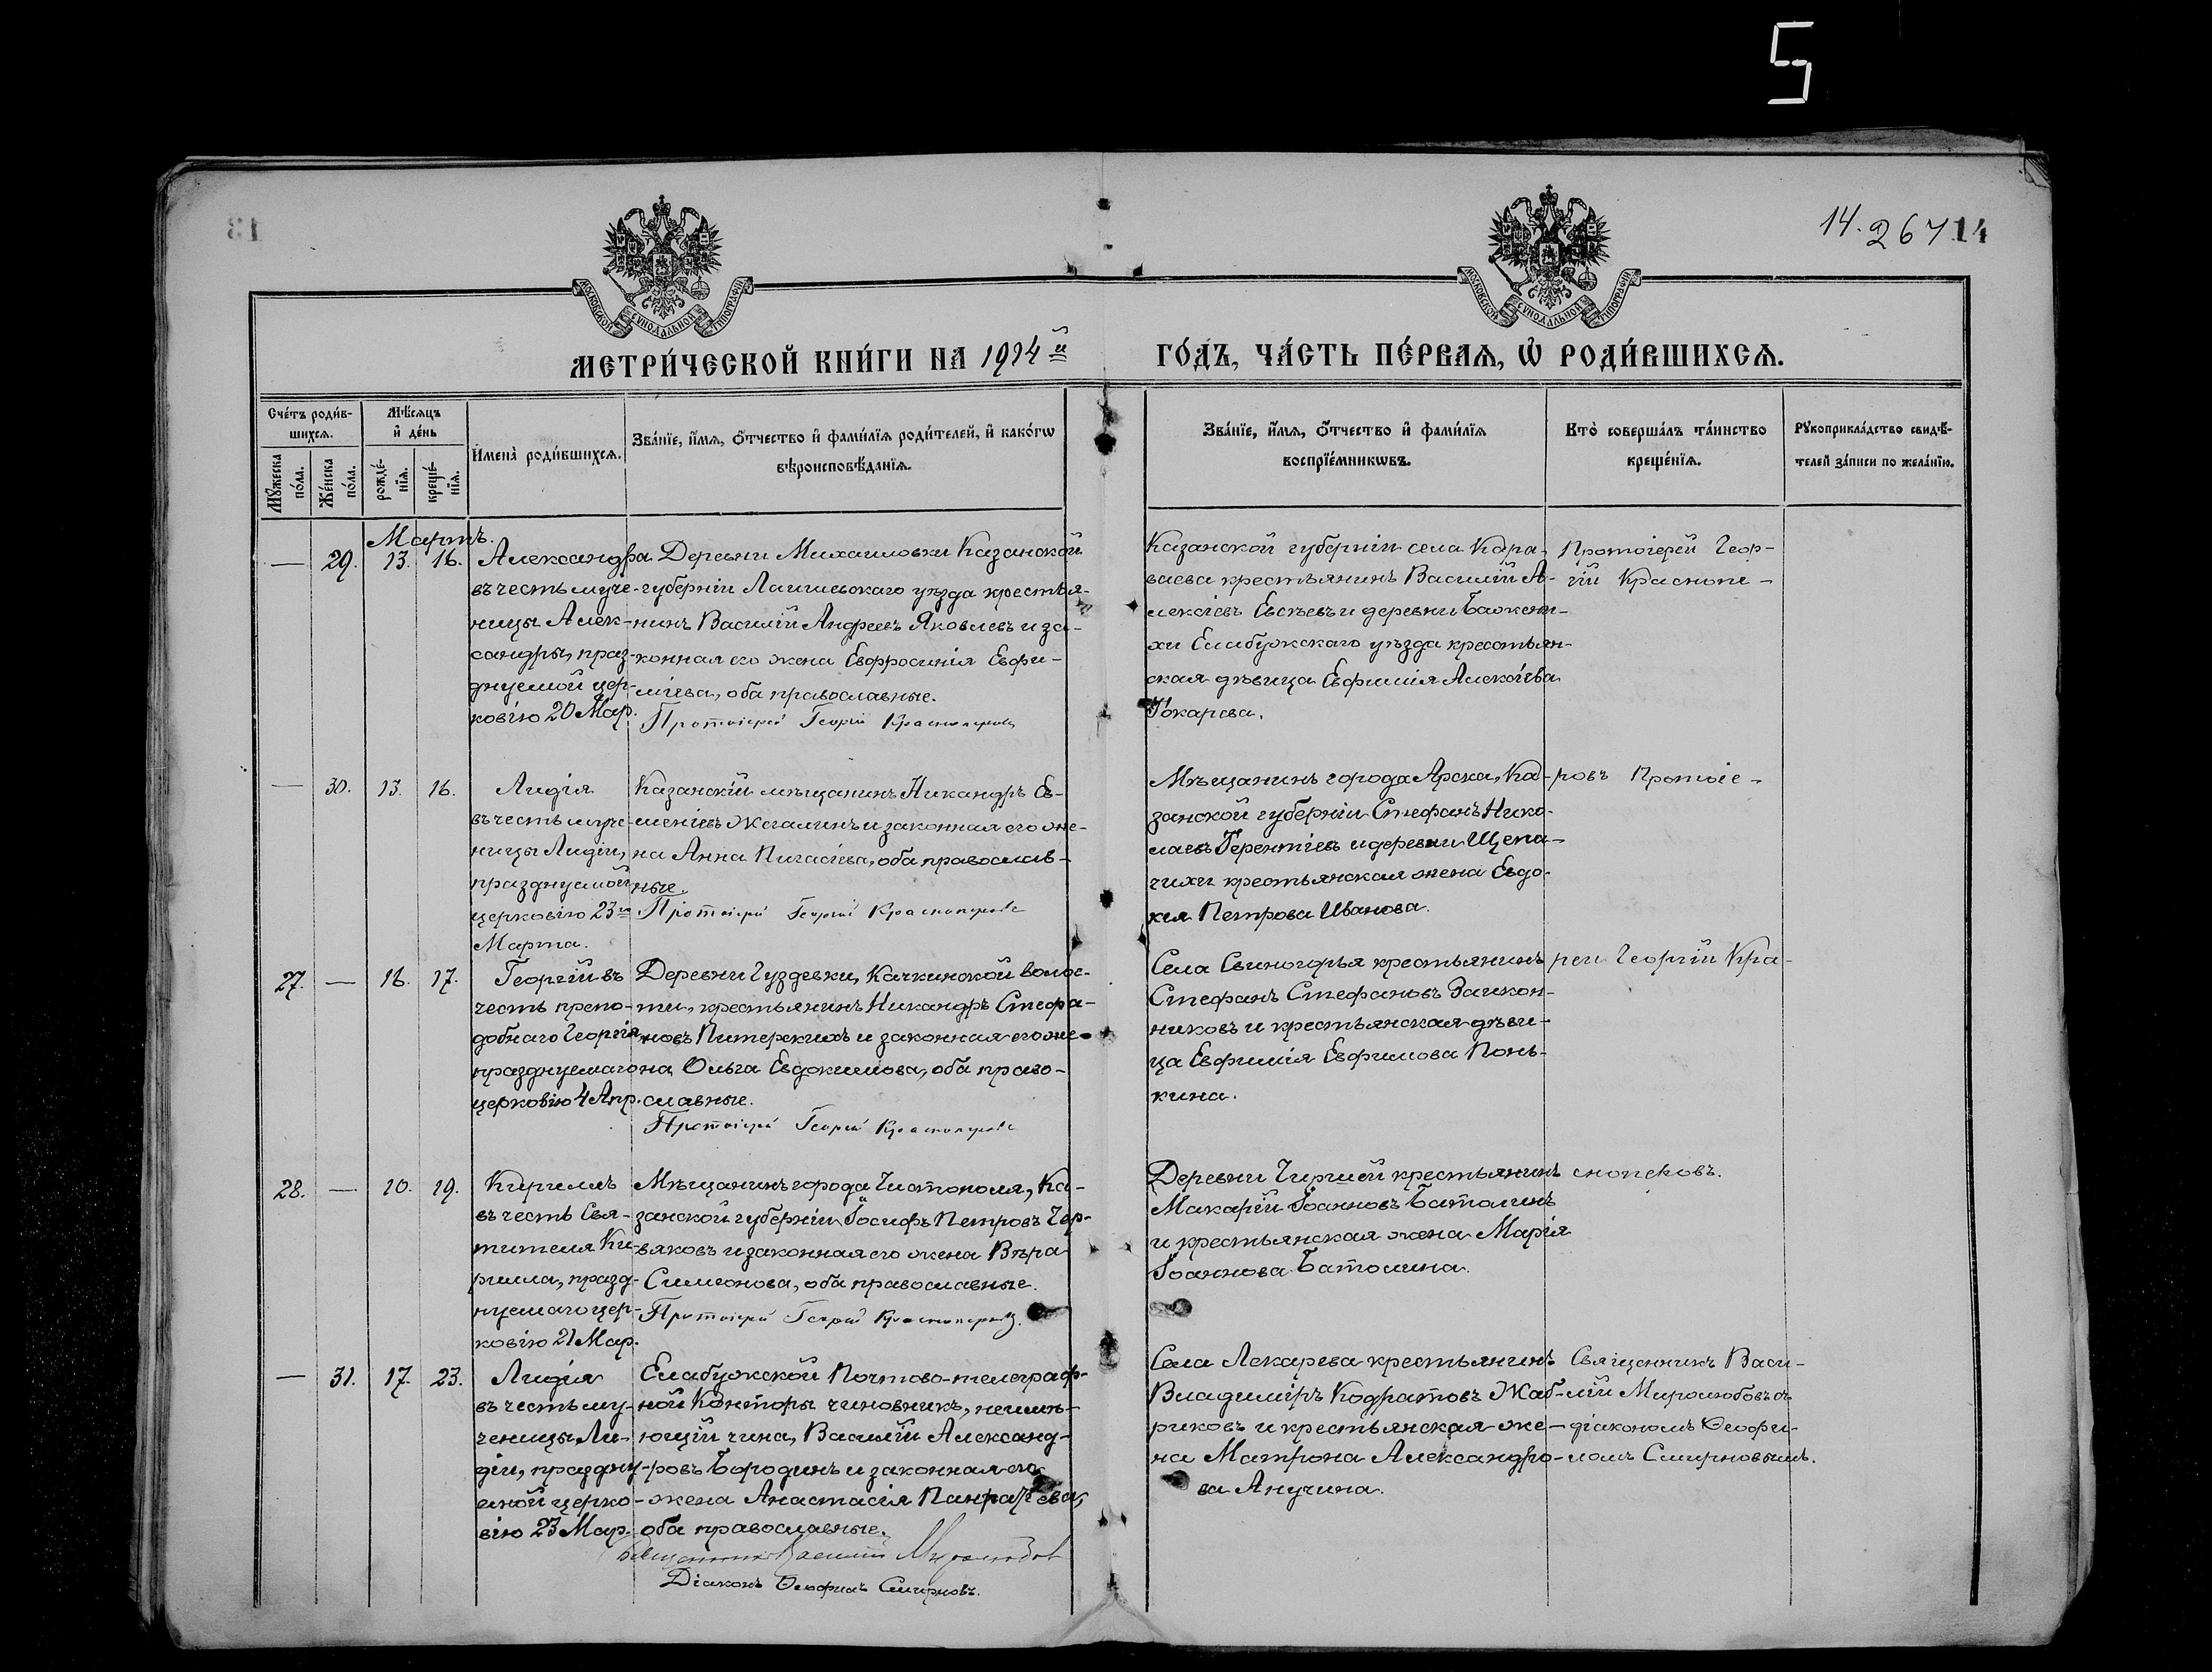 5
13
14. 267 14
МОСКОВСКОЙ СѴНОДАЛЬНОЙ ТИПОГРАФІИ
МОСКОВСКОЙ СѴНОДАЛЬНОЙ ТИПОГРАФІИ
МЕТРИ́ЧЕСКОЙ КНИ́ГИ НА 1914й ГО́ДЪ, ЧА́СТЬ ПЕ́РВАѦ, Ѡ҆ РОДИ́ВШИХСѦ.
Сче́тъ роди́в-
шихсѧ.
Мꙋ́жеска
по́ла.
Же́нска
по́ла.
Мѣ́сѧцъ
и҆ де́нь
рожде́-
нїѧ.
креще́-
нїѧ.
И҆мена̀ роди́вшихсѧ.
Зва́нїе, и҆́мѧ, ѻ҆́тчество и҆ фами́лїѧ роди́телей, и҆ како́гѡ
вѣроисповѣ́данїѧ.
Зва́нїе, и҆́мѧ, ѻ҆́тчество и҆ фами́лїѧ
воспрїе́мникѡвъ.
Кто̀ соверша́лъ та́инство
креще́нїѧ.
Рꙋкоприкла́дство свидѣ́-
телей за́писи по жела́нїю.
Мартъ.
— 29. 13. 16.
Александра
въ честь муче-
ницы Алек-
сандры, праз-
днуемой цер-
ковію 20 Мар.
Деревни Михаиловки Казанской
губерніи Лаишевскаго уѣзда крестья-
нинъ Василій Андреевъ Яковлевъ и за-
конная его жена Евфросинія Евфи-
міева, оба православные.
Протоіерей Георгій Красноперовъ
Казанской губерніи села Кара-
ваева крестьянинъ Василій А-
лексіевъ Евсѣевъ и деревни Бажени-
хи Елабужскаго уѣзда крестьян-
ская дѣвица Евфимія Алексіева
Токарева.
Протоіерей Геор-
гій Краснопе-
— 30. 13. 16.
Лидія
въ честь муче-
ницы Лидіи,
празднуемой
церковію 23го
Марта.
Казанскій мѣщанинъ Никандръ Ев-
меніевъ Жегалинъ и законная его же-
на Анна Пигасіева, оба православ-
ные.
Протоіерей Георгій Красноперовъ
Мѣщанинъ города Арска, Ка-
занской губерніи Стефанъ Нико-
лаевъ Терентіевъ и деревни Щепа-
чихи крестьянская жена Евдо-
кія Петрова Иванова.
ровъ Протоіе-
27. — 16. 17.
Георгій въ
честь препо-
добнаго Георгія
празднуемаго
церковію 4 Апр.
Деревни Гуздевки, Качкинской волос-
ти, крестьянинъ Никандръ Стефа-
новъ Питерскихъ и законная его же-
на Ольга Евдокимова, оба право-
славные.
Протоіерей Георгій Красноперовъ
Села Свиногорья крестьянинъ
Стефанъ Стефановъ Заикон-
никовъ и крестьянская дѣви-
ца Евфимія Евфимова Понь-
кина.
рей Георгій Кра-
28. — 10. 19.
Кириллъ
въ честь Свя-
тителя Ки-
рилла, празд-
нуемаго цер-
ковію 21 Мар.
Мѣщанинъ города Чистополя, Ка-
занской губерніи Іосифъ Петровъ Чер-
вяковъ и законная его жена Вѣра
Симеонова, оба православные.
Протоіерей Георгій Красноперовъ.
Деревни Чиршей крестьянинъ
Макарій Іоанновъ Батолинъ
и крестьянская жена Марія
Іоаннова Батолина.
сноперовъ.
— 31. 17. 23.
Лидія
въ честь му-
ченицы Ли-
діи, праздну-
емой церко-
вію 23 Мар.
Елабужской Почтово-телеграф-
ной Конторы чиновникъ, неимѣ-
ющій чина, Василій Александ-
ровъ Бородинъ и законная его
жена Анастасія Панкратіева,
оба православные.
Священникъ Василій Миролюбовъ
Діаконъ Ѳеофилъ Смирновъ.
Села Лекарева крестьянинъ
Владиміръ Кодратовъ Жаб-
риковъ и крестьянская же-
на Матрона Александро-
ва Анучина.
Священникъ Васи-
лій Миролюбовъ съ
діакономъ Ѳеофи-
ломъ Смирновымъ.